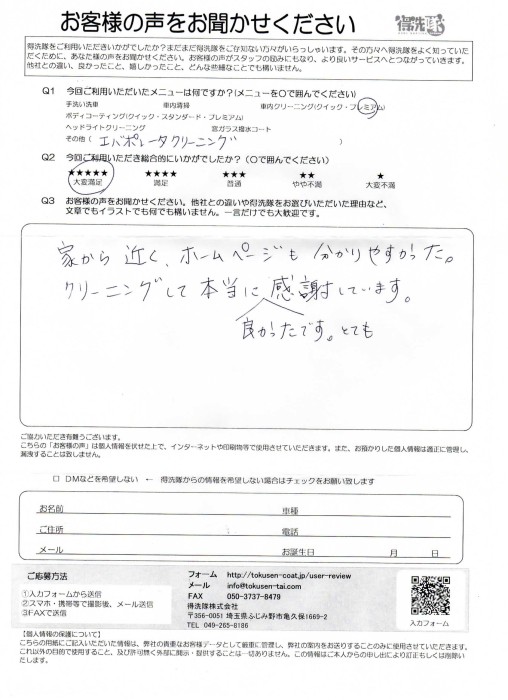 お客様の声をお聞かせください
得洗隊
得洗隊をご利用いただきいかがでしたか？まだまだ得洗隊をご存知ない方々がいらっしゃいます。その方々へ得洗隊をよく知っていた
だくために、あなた様の声をお聞かせください。お客様の声がスタッフの励みにもなり、より良いサービスへとつながっていきます。
他社との違い、良かったこと、嬉しかったこと、どんな些細なことでも構いません。
Q1 今回ご利用いただいたメニューは何ですか？（メニューを○で囲んでください）
手洗い洗車 車内清掃 車内クリーニング（クイック・プレミアム）
ボディコーティング（クイック・スタンダード・プレミアム）
ヘッドライトクリーニング 窓ガラス撥水コート
その他（ エバポレータクリーニング ）
Q2 今回ご利用いただき総合的にいかがでしたか？（○で囲んでください）
★★★★★ ★★★★ ★★★ ★★ ★
大変満足 満足 普通 やや不満 大変不満
Q3 お客様の声をお聞かせください。他社との違いや得洗隊をお選びいただいた理由など、
文章でもイラストでも何でも構いません。一言だけでも大歓迎です。
家から近く、ホームページも分かりやすかった。
クリーニングして本当に感謝しています。
良かったです。とても
ご協力いただき有難うございます。
こちらの「お客様の声」は個人情報を伏せた上で、インターネットや印刷物等で使用させていただきます。また、お預かりした個人情報は適正に管理し、
漏洩することは致しません。
□ DMなどを希望しない ← 得洗隊からの情報を希望しない場合はチェックをお願い致します
お名前 車種
ご住所 電話
メール お誕生日 月 日
ご応募方法
①入力フォームから送信
②スマホ・携帯等で撮影後、メール送信
③FAXで送信
フォーム http://tokusen-coat.jp/user-review
メール info@tokusen-tai.com
FAX 050-3737-8479
得洗隊株式会社
〒356-0051 埼玉県ふじみ野市亀久保1669-2
TEL 049-265-8186
入力フォーム
【個人情報の保護について】
こちらの用紙にご記入いただいた情報は、弊社の貴重なお客様データとして厳重に管理し、弊社の案内をお送りすることのみに使用させていただきます。
これ以外の目的で使用すること、及び許可無く外部に開示・提供することは一切ありません。この情報はご本人からの申し出により訂正もしくは削除い
たします。